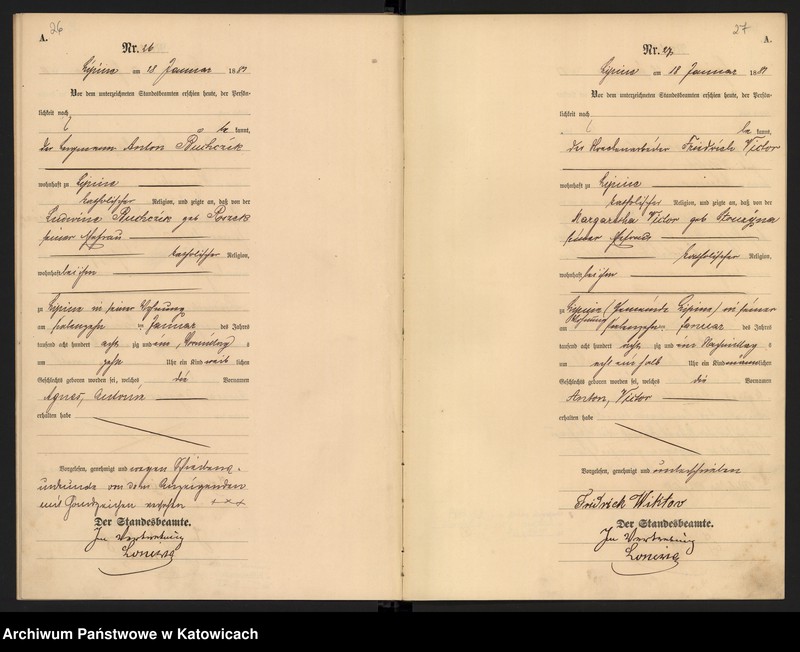 26
A.
Nr. 26
Lipine am 18 Januar 1881
Vor dem unterzeichneten Standesbeamten erschien heute, der Persön-
lichkeit nach
kannt,
der Bergmann Anton Buchczik
wohnhaft zu Lipine
katholischer Religion, und zeigte an, daß von der
Ludwina Buchczik geb
seiner Ehefrau
katholischer Religion,
wohnhaft bei ihm
zu Lipine in seiner Wohnung
am ten Januar des Jahres
tausend acht hundert acht zig und ein, Vormittag s
um Uhr ein Kind weib lichen
Geschlechts geboren worden sei, welches die Vornamen
Agnes,
erhalten habe
Vorgelesen, genehmigt und wegen Schreibens-
unkunde von dem Anzeigenden
mit Handzeichen versehen +++
Der Standesbeamte.
In Vertretung
27
A.
Nr. 27
Lipine am 18 Januar 1881
Vor dem unterzeichneten Standesbeamten erschien heute, der Persön-
lichkeit nach
be kannt,
der Friedrich Victor
wohnhaft zu Lipine
katholischer Religion, und zeigte an, daß von der
Margaretha Victor geb
seiner Ehefrau
katholischer Religion,
wohnhaft bei ihm
zu Lipine (Gemeinde Lipine) in seiner
Wohnung
am ten Januar des Jahres
tausend acht hundert acht zig und ein Nachmittag s
um acht ein halb Uhr ein Kind männ lichen
Geschlechts geboren worden sei, welches die Vornamen
Anton, Victor
erhalten habe
Vorgelesen, genehmigt und unterschrieben
Fridrich Wiktor
Der Standesbeamte.
In Vertretung
Archiwum Państwowe w Katowicach